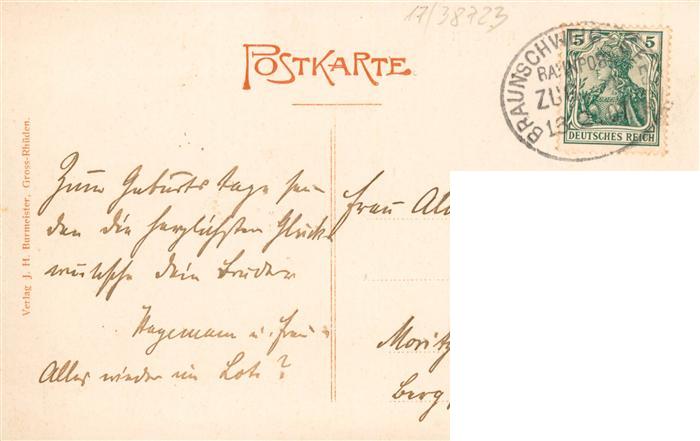 17/38723
POSTKARTE
BRAUNSCHWEIG
BAHNPOST
ZUG
5 5
DEUTSCHES REICH
Verlag J. H. Burmeister, Gross-Rhüden.
Zum Geburtstage sen-
den die herzlichsten Glück-
wünsche dein Bruder
Hagemann u. Frau
Alles wieder im Lot?
Frau
Moritz
berg